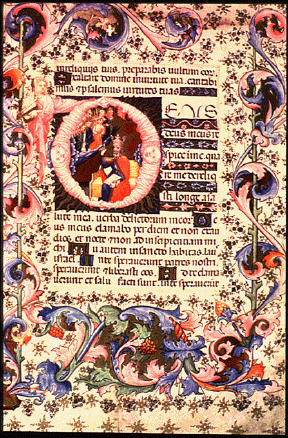 in reliquiis tuis, preparabis vultum eor
xaltare domine in virtute tua, cantabi
mus et psalemus virtutes tuas
DEUS
deus meus re
spice in me, qua
re me dereliq
sti, longe a sa
lute mea, verba delictorum meor
us meus clamabo per diem et non exau
dies, et nocte et non ad insipientiam mi
u autem in sancto habitas, lau
s israel n te speraverunt patres nostri,
speraverunt et liberasti eos d te clama
verunt et salvi facti sunt, in te speraver